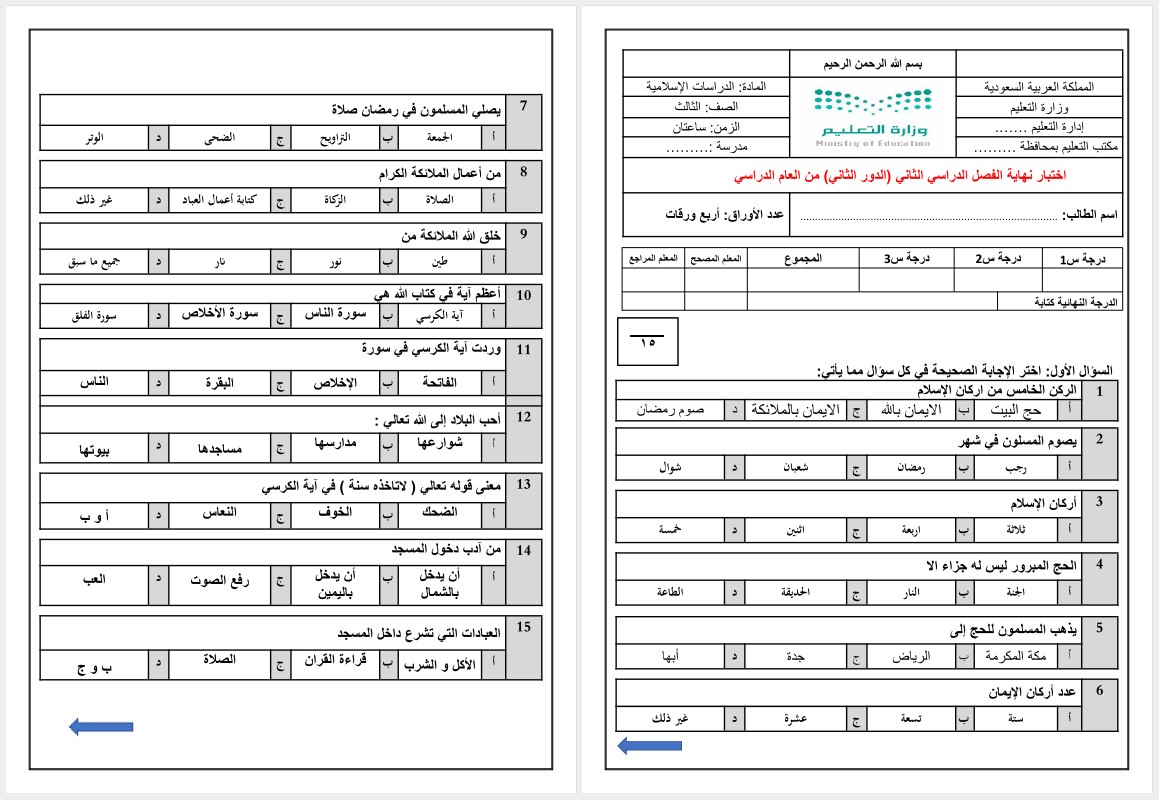 بسم الله الرحمن الرحيم
المملكة العربية السعودية
وزارة التعليم
إدارة التعليم .......
مكتب التعليم بمحافظة .........
وزارة التعليم
Ministry of Education
المادة: الدراسات الإسلامية
الصف: الثالث
الزمن: ساعتان
مدرسة :.........
اختبار نهاية الفصل الدراسي الثاني (الدور الثاني) من العام الدراسي
اسم الطالب: ................................................................ عدد الأوراق: أربع ورقات
درجة س1 درجة س2 درجة س3 المجموع المعلم المصحح المعلم المراجع
الدرجة النهائية كتابة
١٥
السؤال الأول: اختر الإجابة الصحيحة في كل سؤال مما يأتي:
1 الركن الخامس من اركان الإسلام
أ حج البيت ب الايمان بالله ج الايمان بالملائكة د صوم رمضان
2 يصوم المسلون في شهر
أ رجب ب رمضان ج شعبان د شوال
3 أركان الإسلام
أ ثلاثة ب اربعة ج اثنين د خمسة
4 الحج المبرور ليس له جزاء الا
أ الجنة ب النار ج الحديقة د الطاعة
5 يذهب المسلمون للحج إلى
أ مكة المكرمة ب الرياض ج جدة د أبها
6 عدد أركان الإيمان
أ ستة ب تسعة ج عشرة د غير ذلك
7 يصلي المسلمون في رمضان صلاة
أ الجمعة ب التراويح ج الضحى د الوتر
8 من أعمال الملائكة الكرام
أ الصلاة ب الزكاة ج كتابة أعمال العباد د غير ذلك
9 خلق الله الملائكة من
أ طين ب نور ج نار د جميع ما سبق
10 أعظم آية في كتاب الله هي
أ آية الكرسي ب سورة الناس ج سورة الأخلاص د سورة الفلق
11 وردت آية الكرسي في سورة
أ الفاتحة ب الإخلاص ج البقرة د الناس
12 أحب البلاد إلى الله تعالي :
أ شوارعها ب مدارسها ج مساجدها د بيوتها
13 معنى قوله تعالي ( لاتاخذه سنة ) في آية الكرسي
أ الضحك ب الخوف ج النعاس د أ و ب
14 من آدب دخول المسجد
أ أن يدخل بالشمال ب أن يدخل باليمين ج رفع الصوت د العب
15 العبادات التي تشرع داخل المسجد
أ الأكل و الشرب ب قراءة القران ج الصلاة د ب و ج